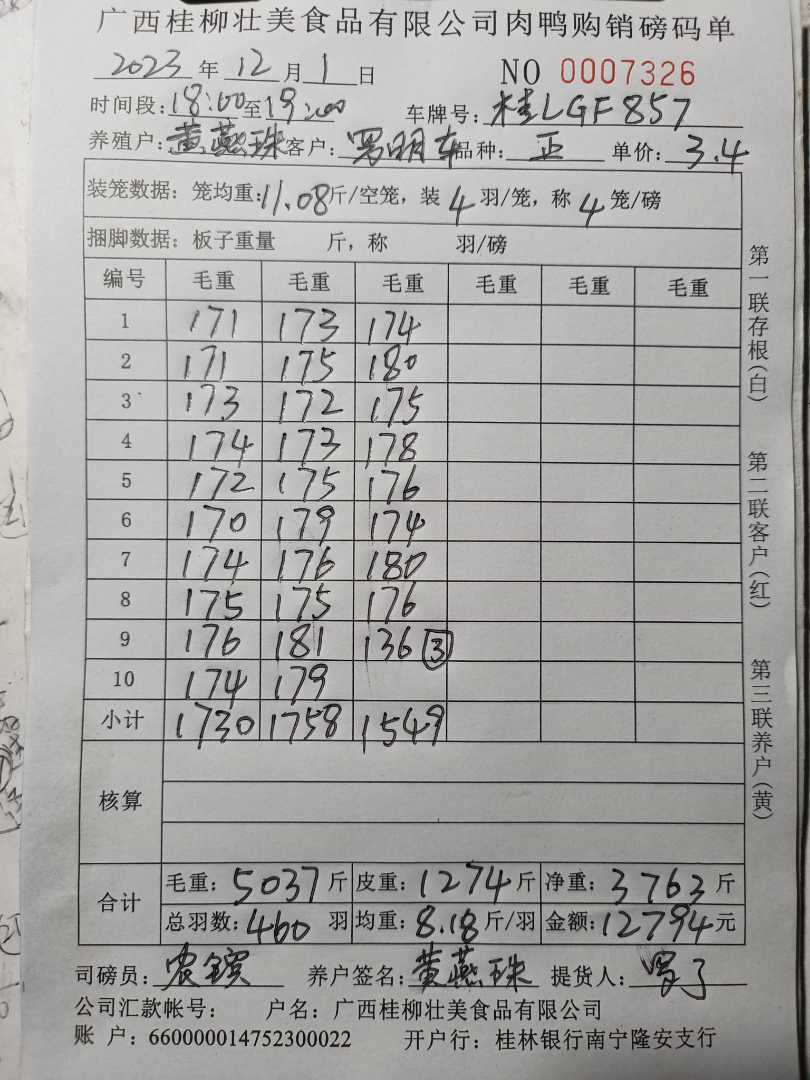 广西桂柳壮美食品有限公司肉鸭购销磅码单
2023 年 12 月 1 日 NO 0007326
时间段:18:00至19:00 车牌号:桂LGF857
养殖户:黄燕珠 客户:罗明车 品种:正 单价:3.4
装笼数据:笼均重:11.08斤/空笼,装 4 羽/笼,称 4 笼/磅
捆脚数据:板子重量 斤,称 羽/磅
编号 毛重 毛重 毛重 毛重 毛重 毛重
1 171 173 174
2 171 175 180
3 173 172 175
4 174 173 178
5 172 175 176
6 170 179 174
7 174 176 180
8 175 175 176
9 176 181 136 ③
10 174 179
小计 1730 1758 1549
核算
合计 毛重:5037斤 皮重:1274斤 净重:3763斤
总羽数:460 羽 均重:8.18斤/羽 金额:12794元
司磅员:农镔 养户签名:黄燕珠 提货人:
公司汇款帐号: 户名:广西桂柳壮美食品有限公司
账 户:660000014752300022 开户行:桂林银行南宁隆安支行
第一联存根(白)
第二联客户(红)
第三联养户(黄)